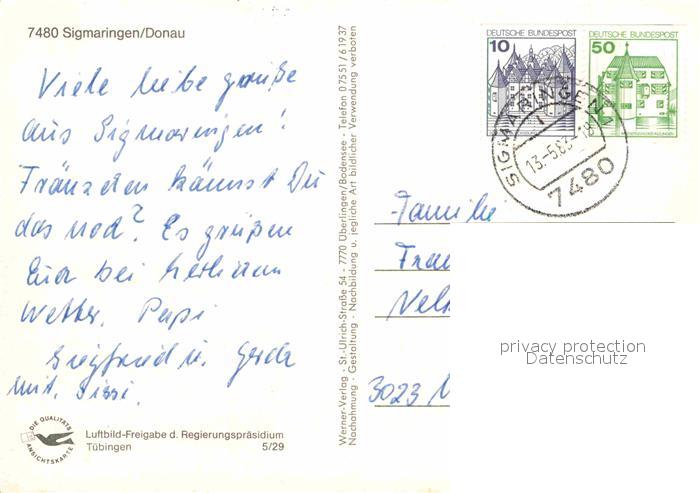 7480 Sigmaringen/Donau
Viele liebe grüße
aus Sigmaringen!
Fränzchen kännst Du
das noch? Es grüßen
Euch bei herlichem
Wetter, Papi
Siegfried u. Gerda
mit. Sissi.
DIE QUALITÄTS
ANSICHTSKARTE
Luftbild-Freigabe d. Regierungspräsidium
Tübingen 5/29
Werner-Verlag - St.-Ulrich-Straße 54 - 7770 Überlingen/Bodensee - Telefon 07551/61937
Nachahmung - Gestaltung - Nachbildung u. jegliche Art bildlicher Verwendung verboten
DEUTSCHE BUNDESPOST
10
DEUTSCHE BUNDESPOST
50
SIGMARINGEN 1
13.-5.83.-18
7480
Familie
Fran
Vel
3023
privacy protection
Datenschutz